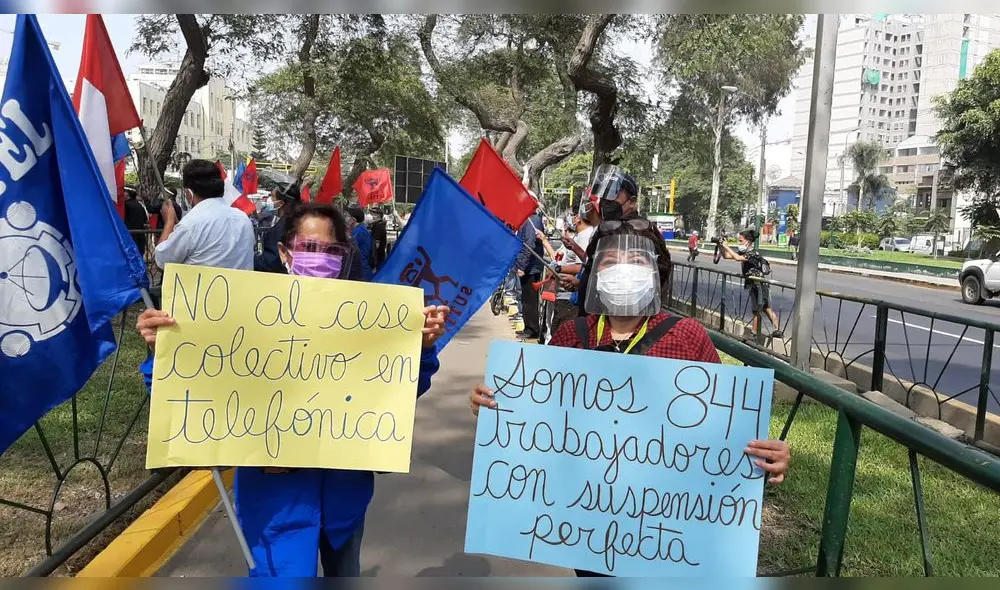 NO al cese
colectivo en
telefónica
Somos 844
trabajadores
con suspensión
perfecta